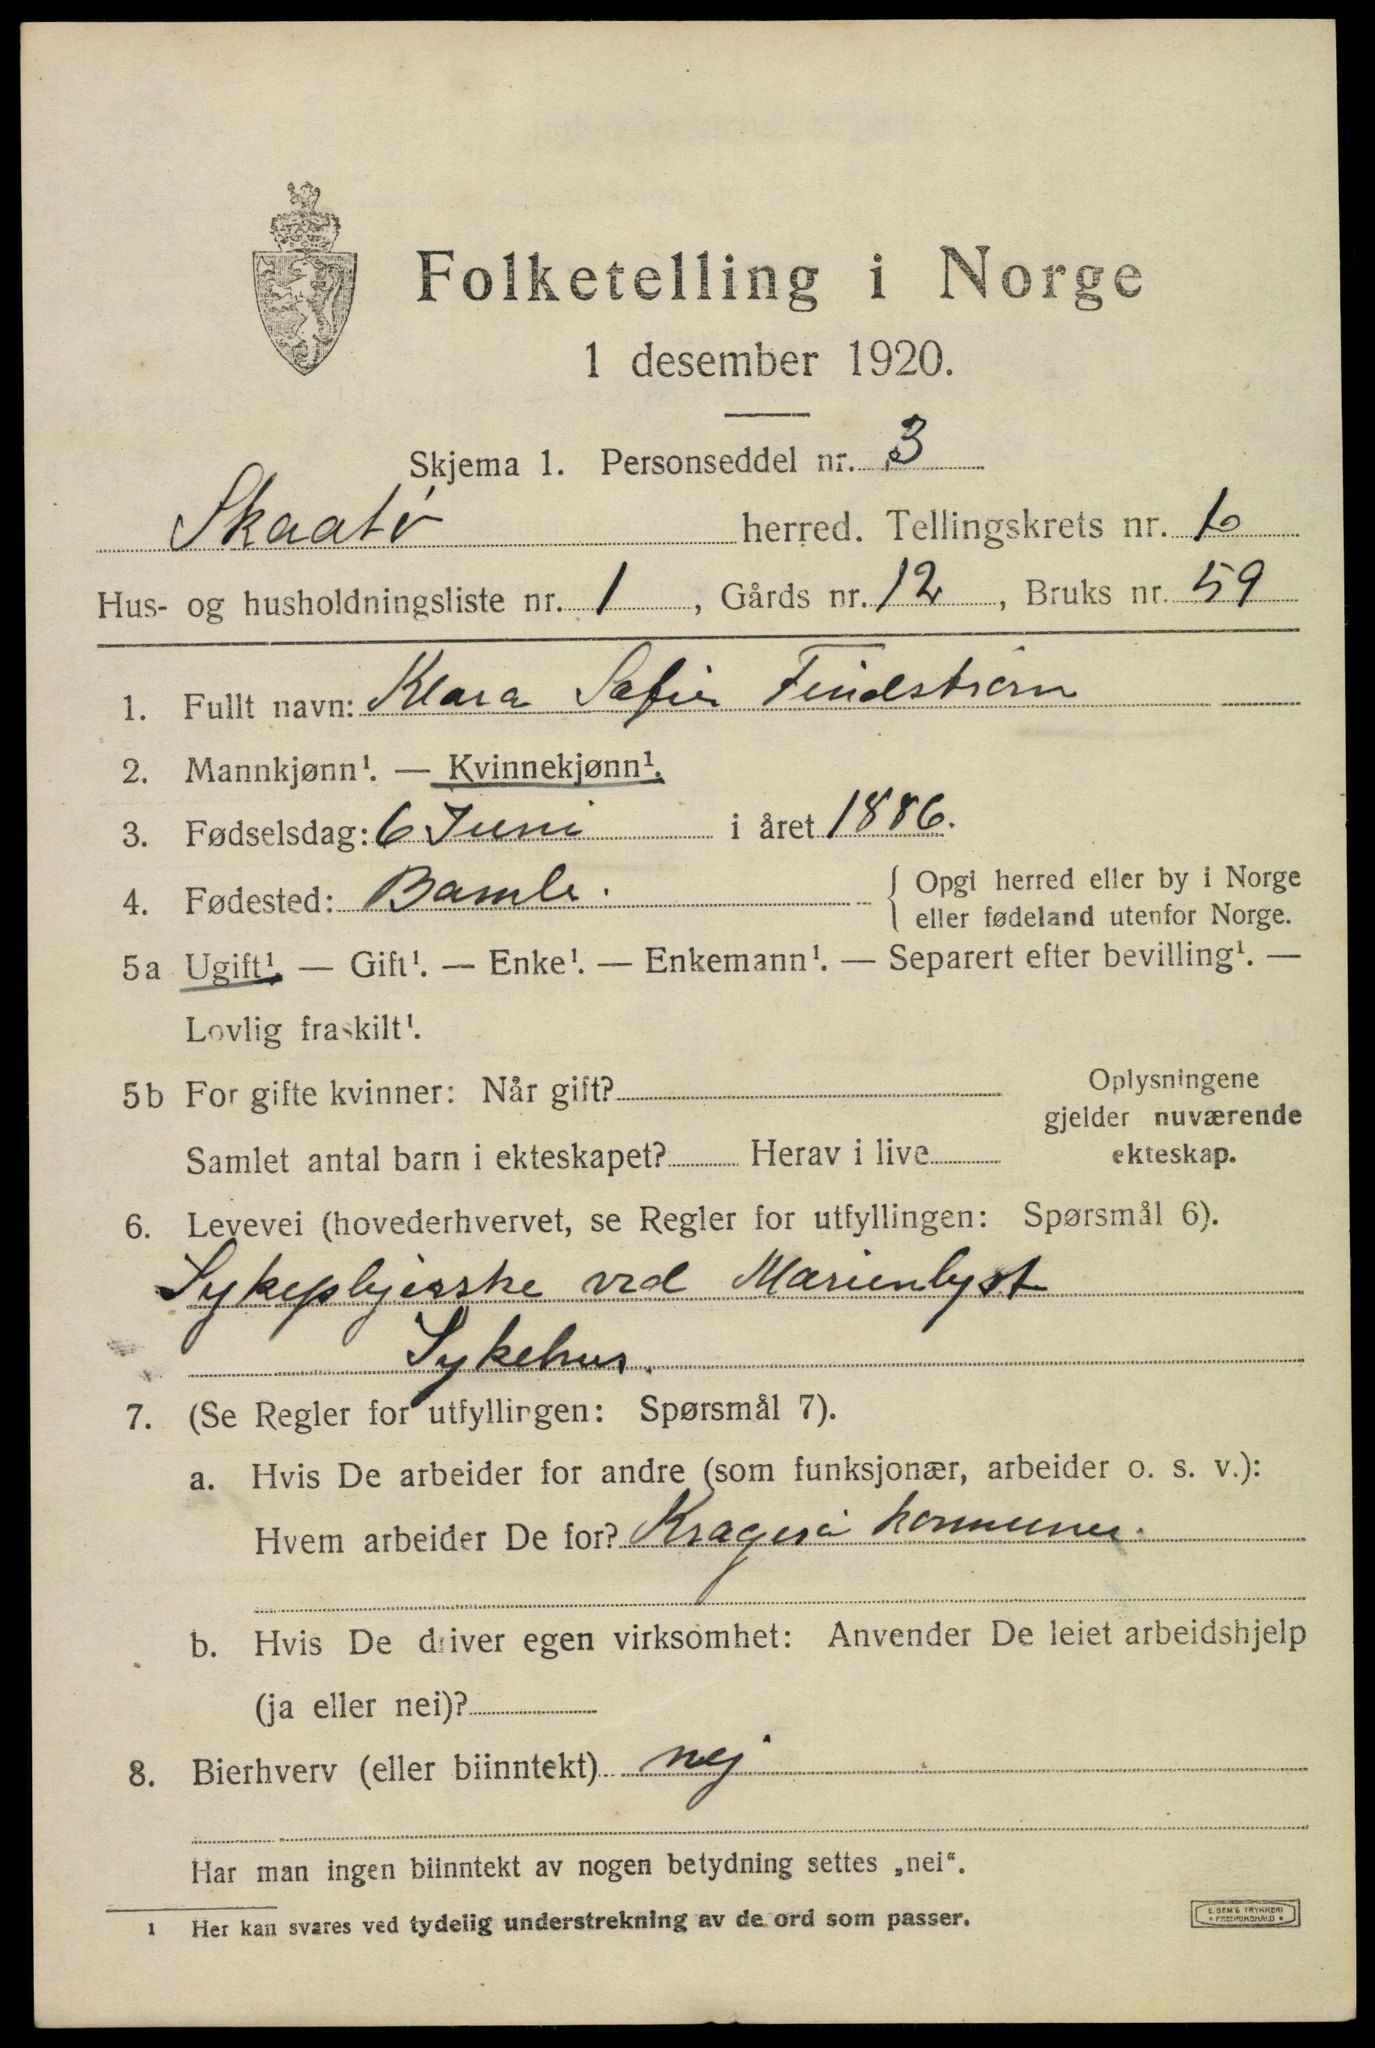 Folketelling i Norge
1 desember 1920.
Skjema 1. Personseddel nr. 3
Skaatö herred. Tellingskrets nr. 6
Hus- og husholdningsliste nr. 1, Gårds nr. 12, Bruks nr. 59
1. Fullt navn: Klara Sofie Findstrøm
2. Mannkjønn¹. — Kvinnekjønn¹.
3. Fødselsdag: 6 Juni i året 1886.
4. Fødested: Bamle. { Opgi herred eller by i Norge
eller fødeland utenfor Norge.
5a Ugift¹. — Gift¹. — Enke¹. — Enkemann¹. — Separert efter bevilling¹. —
Lovlig fraskilt¹.
5b For gifte kvinner: Når gift?
Samlet antal barn i ekteskapet? Herav i live
Oplysningene
gjelder nuværende
ekteskap.
6. Levevei (hovederhvervet, se Regler for utfyllingen: Spørsmål 6).
Sykeplejerske ved Marienlyst
Sykehus.
7. (Se Regler for utfyllingen: Spørsmål 7).
a. Hvis De arbeider for andre (som funksjonær, arbeider o. s. v.):
Hvem arbeider De for? Kragerö kommune.
b. Hvis De driver egen virksomhet: Anvender De leiet arbeidshjelp
(ja eller nei)?
8. Bierhverv (eller biinntekt) nej
Har man ingen biinntekt av nogen betydning settes „nei“.
1 Her kan svares ved tydelig understrekning av de ord som passer.
E. SEM'S TRYKKERI
FREDRIKSHALD